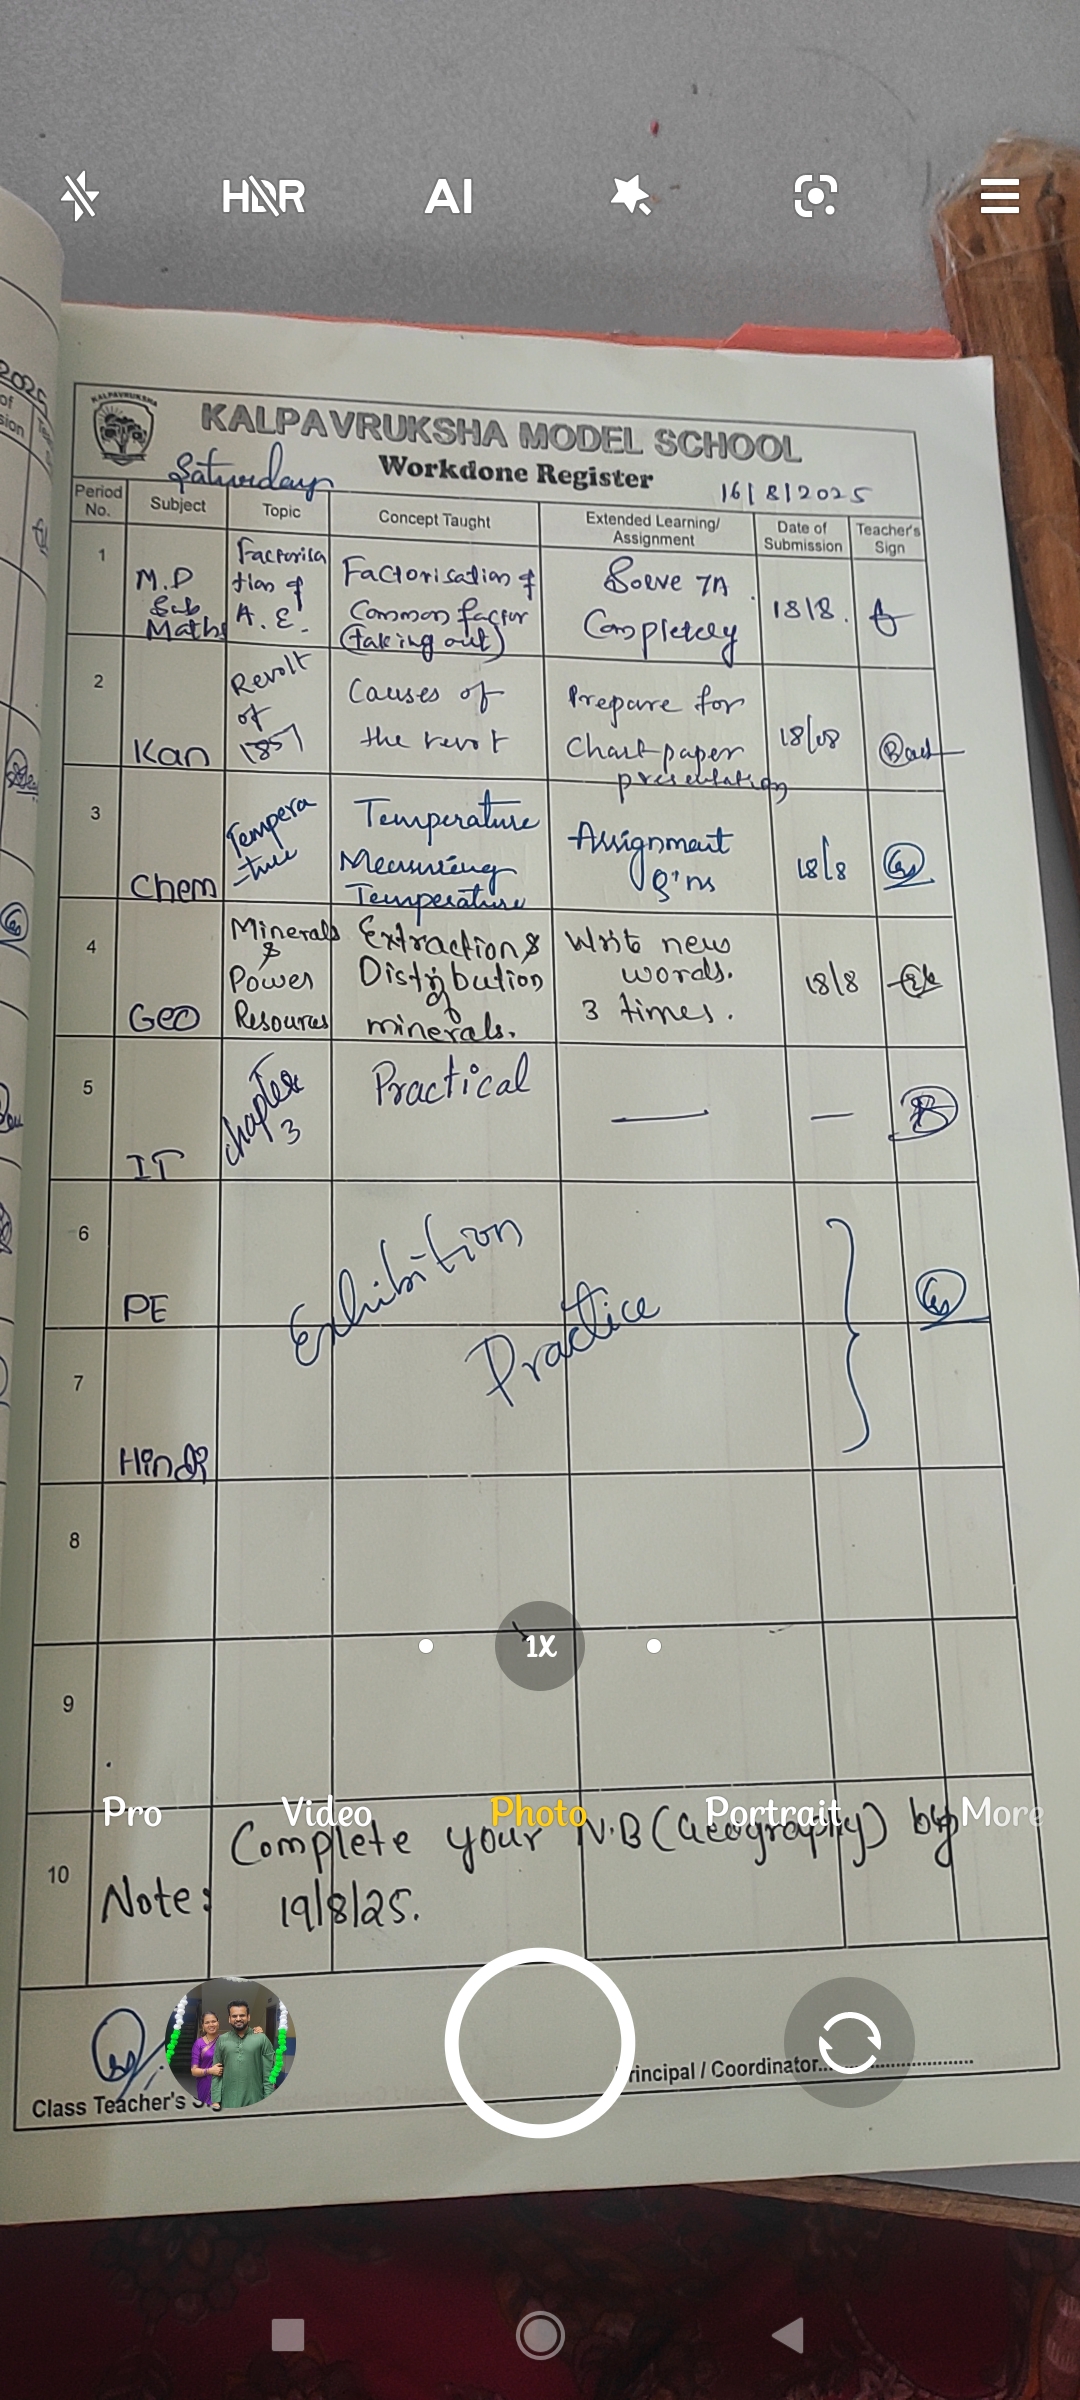 HDR
AI
KALPAVRUKSHA
KALPAVRUKSHA MODEL SCHOOL
Saturday
Workdone Register
16/8/2025
Period No.
Subject
Topic
Concept Taught
Extended Learning/ Assignment
Date of Submission
Teacher's Sign
1
M.D
Sub
Maths
Factorisa
tion of
A.E.
Factorisation of
Common factor
(taking out)
Solve 7A
Completely
18/8.
2
Kan
Revolt
of
1857
Causes of
the revot
Prepare for
Chart paper
presentation
18/08
3
Chem
Tempera
-ture
Temperature
Measuring
Temperature
Assignment
Q'ns
18/8
4
GEO
Minerals
&
Power
Resources
Extraction &
Distribution
of
minerals.
Write new
words.
3 times.
18/8
5
IT
Chapter
3
Practical
—
—
6
PE
Exhibition
Practice
7
Hindi
8
1X
9
Pro
Video
Photo
Portrait
More
10
Note:
Complete your N.B (Geography) by
19/8/25.
Class Teacher's
rincipal / Coordinator...